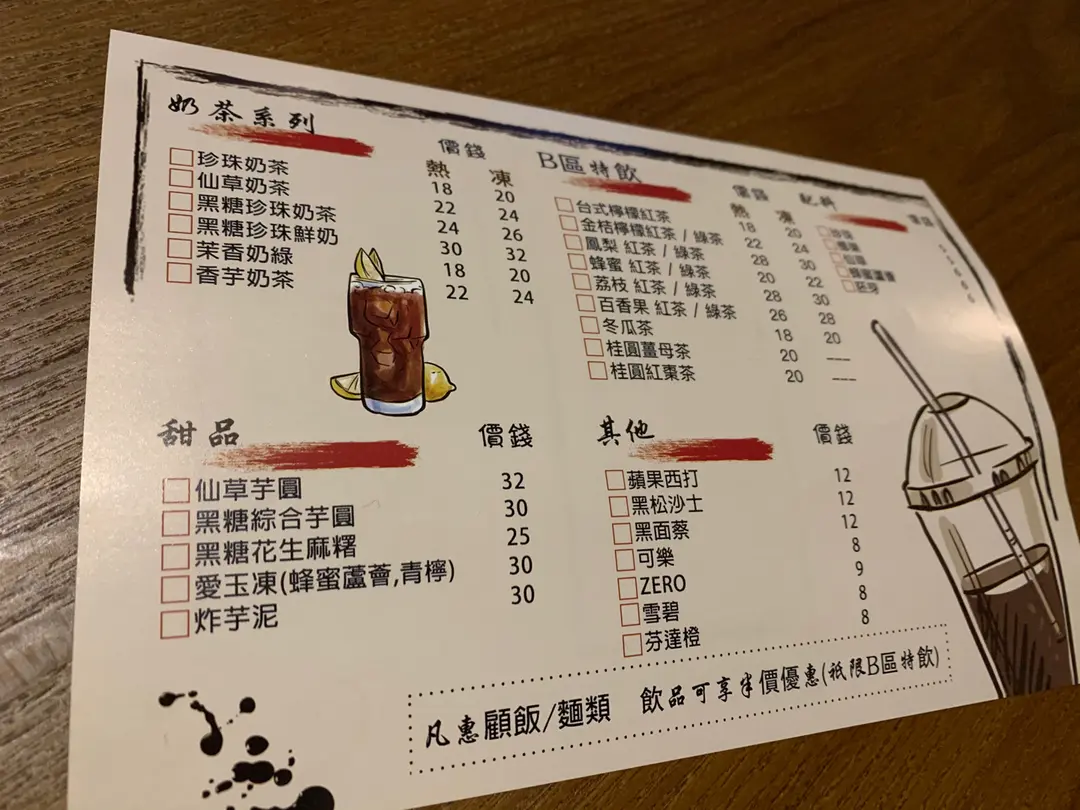 奶茶系列 價錢
熱 凍
珍珠奶茶 18 20
仙草奶茶 22 24
黑糖珍珠奶茶 24 26
黑糖珍珠鮮奶 30 32
茉香奶綠 18 20
香芋奶茶 22 24
B區特飲 價錢
熱 凍
台式檸檬紅茶 18 20
金桔檸檬紅茶 / 綠茶 22 24
鳳梨 紅茶 / 綠茶 28 30
蜂蜜 紅茶 / 綠茶 20 22
荔枝 紅茶 / 綠茶 28 30
百香果 紅茶 / 綠茶 26 28
冬瓜茶 18 20
桂圓薑母茶 20 ——
桂圓紅棗茶 20 ——
配料 價錢
珍珠
仙草
蜂蜜蘆薈
胚芽
甜品 價錢
仙草芋圓 32
黑糖綜合芋圓 30
黑糖花生麻糬 25
愛玉凍(蜂蜜蘆薈,青檸) 30
炸芋泥 30
其他 價錢
蘋果西打 12
黑松沙士 12
黑面蔡 12
可樂 8
ZERO 9
雪碧 8
芬達橙 8
凡惠顧飯/麵類 飲品可享半價優惠(祇限B區特飲)